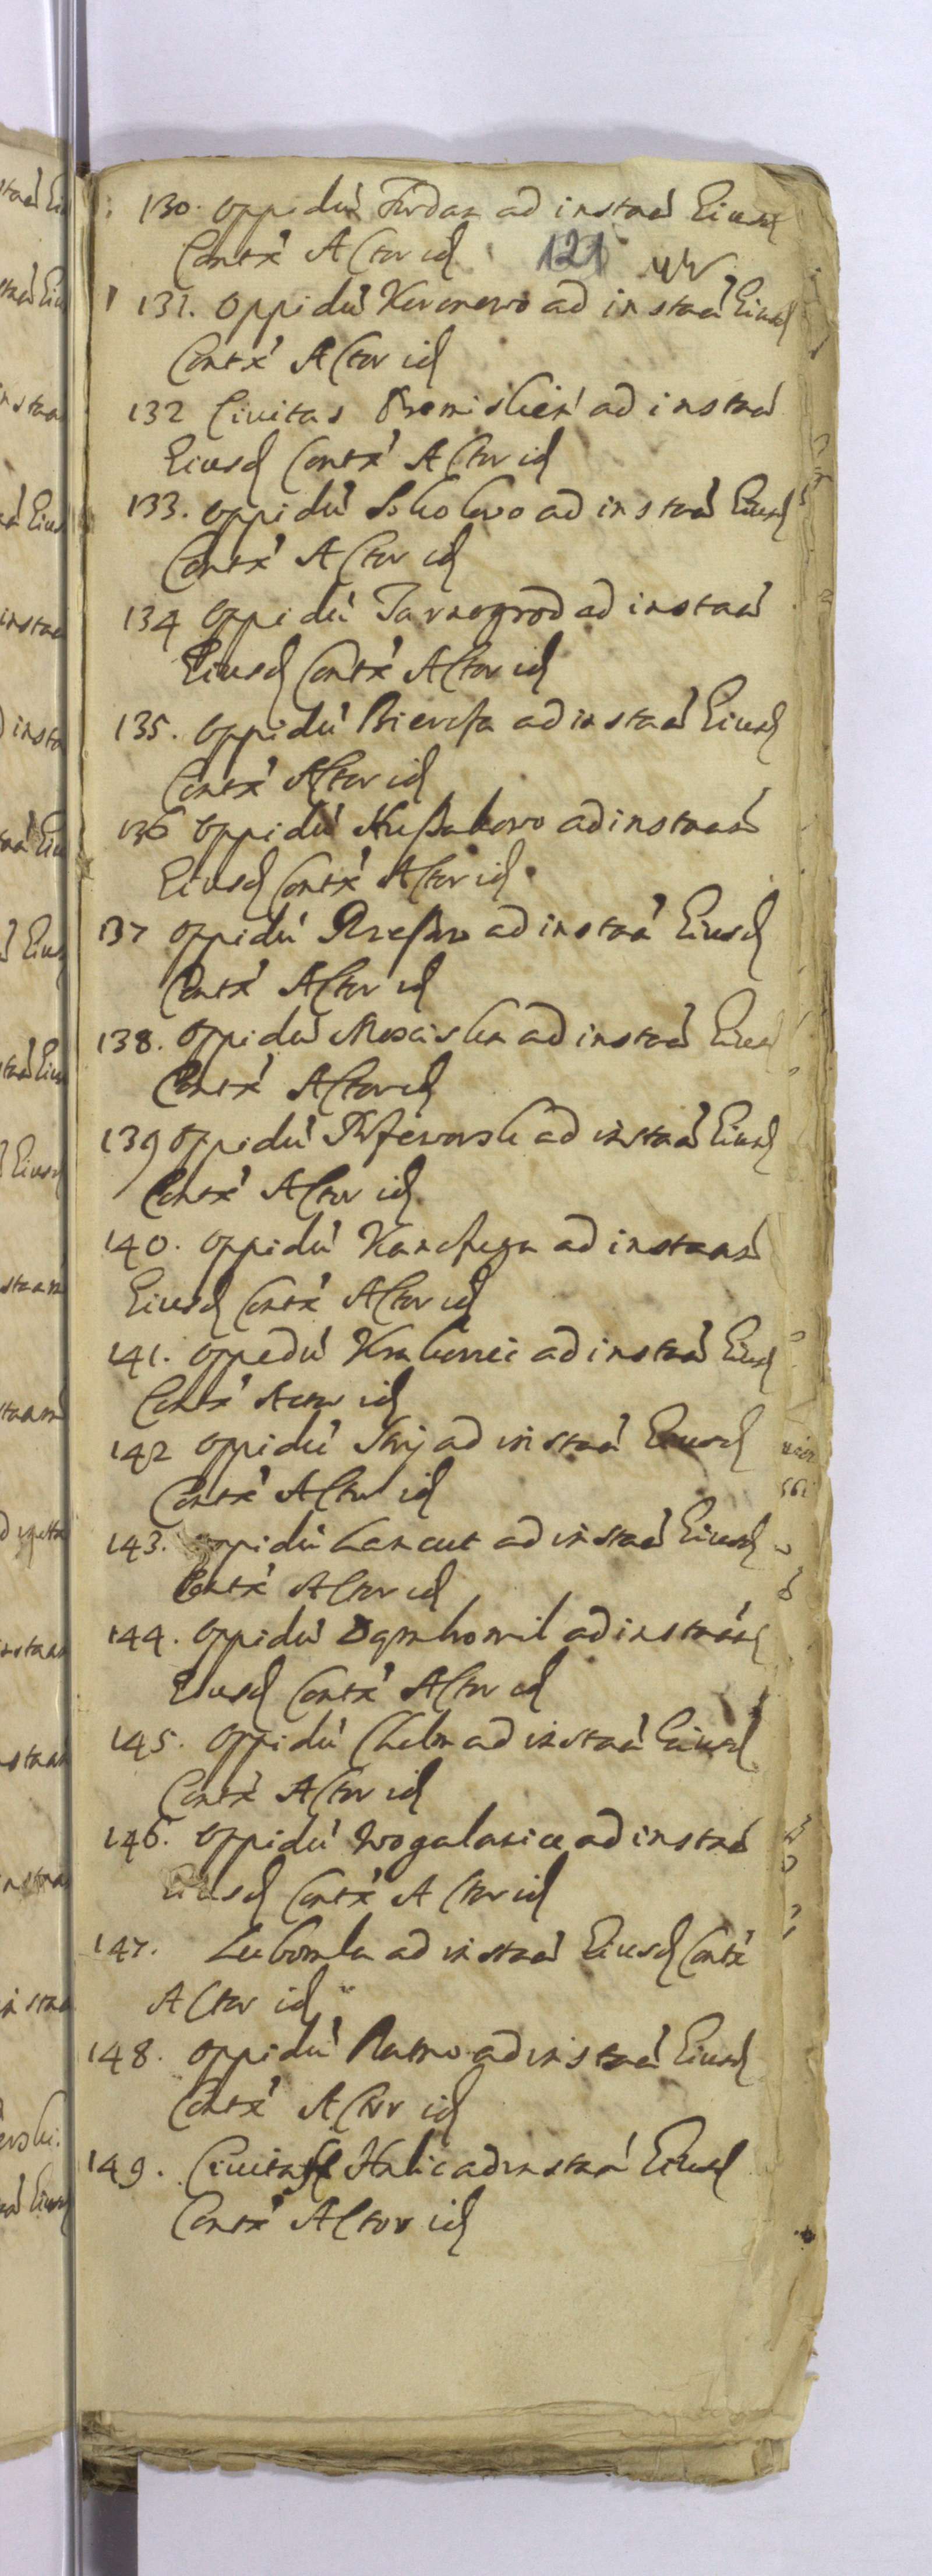 130. Oppidu Fordan ad instaã Eiusd
Contx A Ctor id 121
131. Oppidu Koronowo ad instaã Eiusd
Contx A Ctor id
132 Civitas Premislien ad instaã
Eiusd Contx A Ctor id
133. Oppidu Sokolowo ad instaã Eiusd
Contx A Ctor id
134 Oppidu Tarnogrod ad instaã
Eiusd Contx A Ctor id
135. Oppidu Biercza ad instaã Eiusd
Contx A Ctor id
136 Oppidu Hußakowo ad instaã
Eiusd Contx A Ctor id
137 Oppidu ad instaã Eiusd
Contx A Ctor id
138. Oppidu Mosciska ad instaã Eiusd
Contx A Ctor id
139 Oppidu Przeworsk ad instaã Eiusd
Contx A Ctor id
140. Oppidu Kanczuga ad instaã
Eiusd Contx A Ctor id
141. Oppedu Krakowiec ad instaã Eiusd
Contx Actor id
142 Oppidu ad instaã Eiusd
Contx A Ctor id
143. Oppidu Lancut ad instaã Eiusd
Contx A Ctor id
144. Oppidu ad instaã
Eiusd Contx A Ctor id
145. Oppidu Chelm ad instaã Eiusd
Contx A Ctor id
146. Oppidu ad instaã
Eiusd Contx A Ctor id
147. Lubomla ad instaã Eiusd Contx
A Ctor id
148. Oppidu Ratno ad instaã Eiusd
Contx A Ctor id
149. Civitas Halic ad instaã Eiusd
Contx A Ctor id